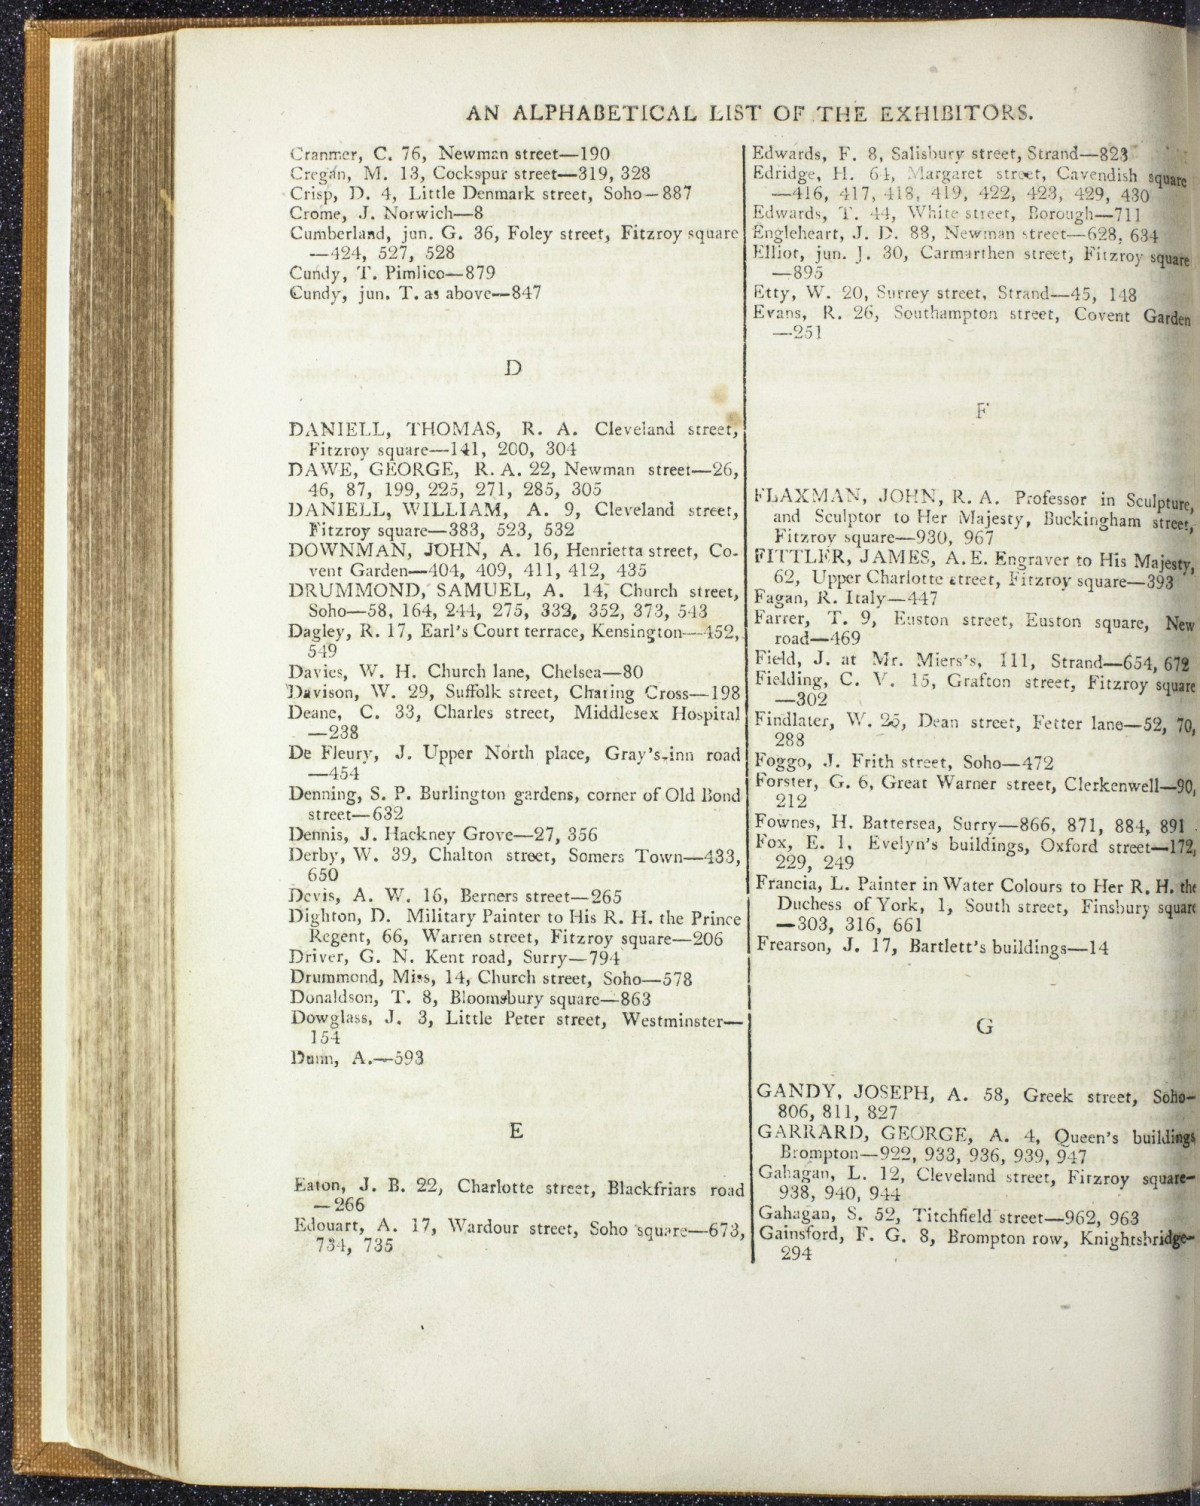 AN ALPHABETICAL LIST OF THE EXHIBITORS.
Cranmer, C. 76, Newman street—190
Cregan, M. 13, Cockspur street—319, 328
Crisp, D. 4, Little Denmark street, Soho—887
Crome, J. Norwich—8
Cumberland, jun. G. 36, Foley street, Fitzroy square
—424, 527, 528
Cundy, T. Pimlico—879
Cundy, jun. T. as above—847
D
DANIELL, THOMAS, R. A. Cleveland street,
Fitzroy square—141, 200, 304
DAWE, GEORGE, R. A. 22, Newman street—26,
46, 87, 199, 225, 271, 285, 305
DANIELL, WILLIAM, A. 9, Cleveland street,
Fitzroy square—383, 523, 532
DOWNMAN, JOHN, A. 16, Henrietta street, Co-
vent Garden—404, 409, 411, 412, 435
DRUMMOND, SAMUEL, A. 14, Church street,
Soho—58, 164, 244, 275, 332, 352, 373, 543
Dagley, R. 17, Earl's Court terrace, Kensington—452,
549
Davies, W. H. Church lane, Chelsea—80
Davison, W. 29, Suffolk street, Charing Cross—198
Deane, C. 33, Charles street, Middlesex Hospital
—238
De Fleury, J. Upper North place, Gray's-inn road
—454
Denning, S. P. Burlington gardens, corner of Old Bond
street—632
Dennis, J. Hackney Grove—27, 356
Derby, W. 39, Chalton street, Somers Town—433,
650
Devis, A. W. 16, Berners street—265
Dighton, D. Military Painter to His R. H. the Prince
Regent, 66, Warren street, Fitzroy square—206
Driver, G. N. Kent road, Surry—794
Drummond, Miss, 14, Church street, Soho—578
Donaldson, T. 8, Bloomsbury square—863
Dowglass, J. 3, Little Peter street, Westminster—
154
Dunn, A.—593
E
Eaton, J. B. 22, Charlotte street, Blackfriars road
—266
Edouart, A. 17, Wardour street, Soho square—673,
734, 735
Edwards, F. 8, Salisbury street, Strand—823
Edridge, H. 64, Margaret street, Cavendish square
—416, 417, 418, 419, 422, 423, 429, 430
Edwards, T. 44, White street, Borough—711
Engleheart, J. D. 88, Newman street—628, 634
Elliot, jun. J. 30, Carmarthen street, Fitzroy square
—895
Etty, W. 20, Surrey street, Strand—45, 148
Evans, R. 26, Southampton street, Covent Garden
—251
F
FLAXMAN, JOHN, R. A. Professor in Sculpture,
and Sculptor to Her Majesty, Buckingham street,
Fitzroy square—930, 967
FITTLER, JAMES, A. E. Engraver to His Majesty,
62, Upper Charlotte street, Fitzroy square—393
Fagan, R. Italy—447
Farrer, T. 9, Euston street, Euston square, New
road—469
Field, J. at Mr. Miers's, 111, Strand—654, 672
Fielding, C. V. 15, Grafton street, Fitzroy square
—302
Findlater, W. 25, Dean street, Fetter lane—52, 70,
288
Foggo, J. Frith street, Soho—472
Forster, G. 6, Great Warner street, Clerkenwell—90,
212
Fownes, H. Battersea, Surry—866, 871, 884, 891
Fox, E. 1, Evelyn's buildings, Oxford street—172,
229, 249
Francia, L. Painter in Water Colours to Her R. H. the
Duchess of York, 1, South street, Finsbury square
—303, 316, 661
Frearson, J. 17, Bartlett's buildings—14
G
GANDY, JOSEPH, A. 58, Greek street, Soho—
806, 811, 827
GARRARD, GEORGE, A. 4, Queen's buildings
Brompton—922, 933, 936, 939, 947
Gahagan, L. 12, Cleveland street, Fitzroy square—
938, 940, 944
Gahagan, S. 52, Titchfield street—962, 963
Gainsford, F. G. 8, Brompton row, Knightsbridge—
294